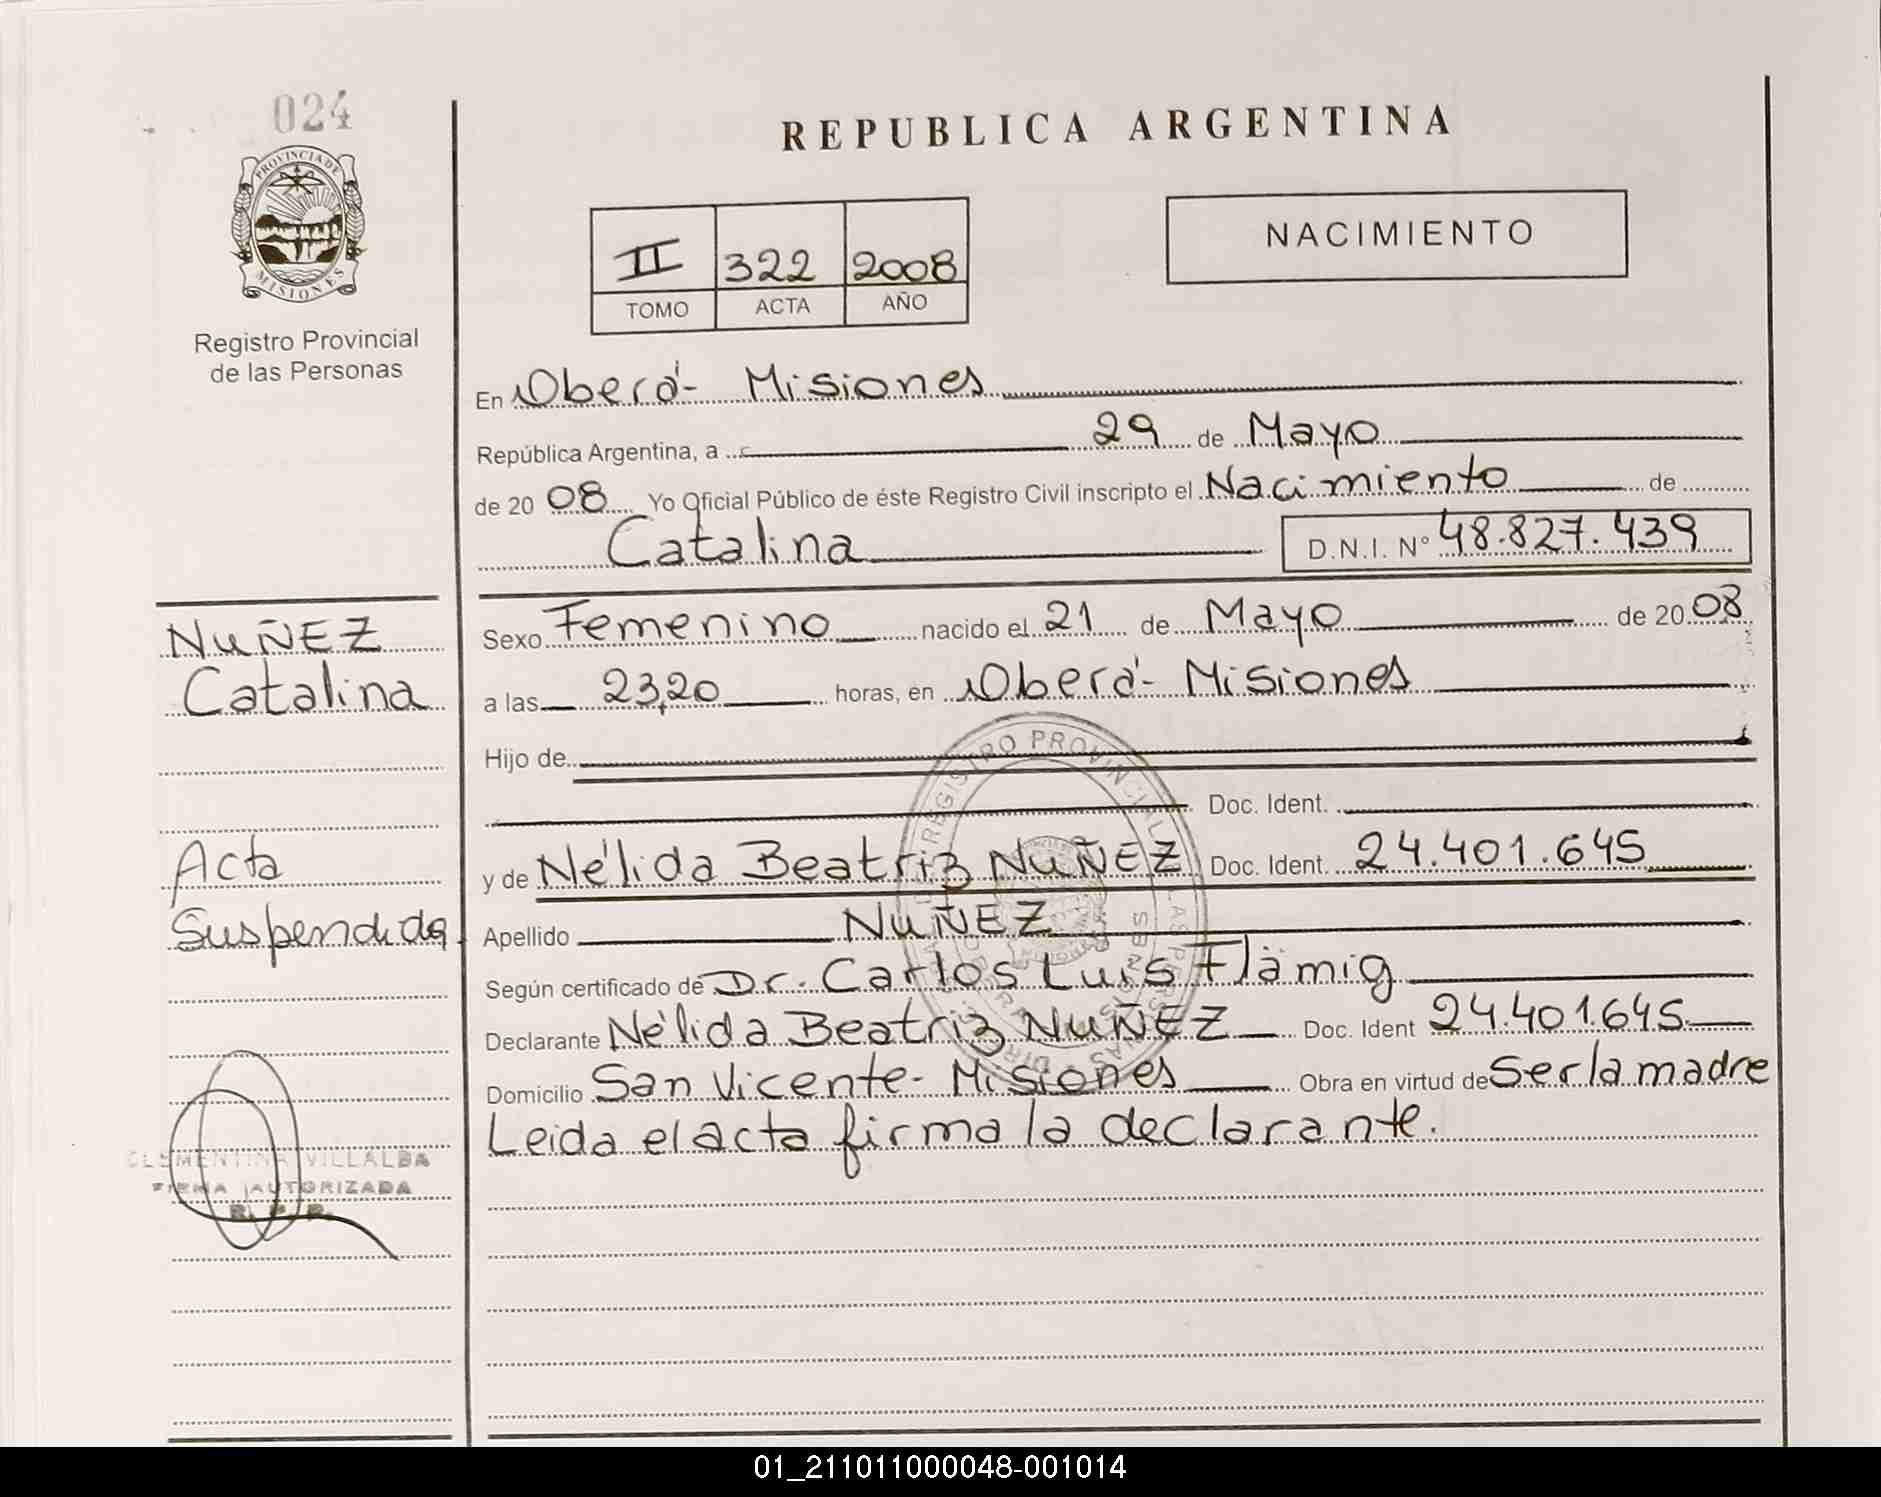 024
PROVINCIA DE
MISIONES
Registro Provincial
de las Personas
REPUBLICA ARGENTINA
II 322 2008
TOMO ACTA AÑO
NACIMIENTO
En Oberá - Misiones
República Argentina, a 29 de Mayo
de 20 08 Yo Oficial Público de éste Registro Civil inscripto el Nacimiento de
Catalina D.N.I. N° 48.827.439
NUÑEZ
Catalina
Acta
Suspendida
CLEMENTINA VILLALBA
FIRMA AUTORIZADA
R. P. P.
Sexo Femenino nacido el 21 de Mayo de 20 08
a las 23,20 horas, en Oberá - Misiones
Hijo de
Doc. Ident.
y de Nélida Beatriz NUÑEZ Doc. Ident. 24.401.645
Apellido NUÑEZ
Según certificado de Dr. Carlos Luis Flämig
Declarante Nélida Beatriz NUÑEZ Doc. Ident 24.401.645
Domicilio San Vicente - Misiones Obra en virtud de Ser la madre
Leida el acta firma la declarante.
REGISTRO PROVINCIAL
01_211011000048-001014